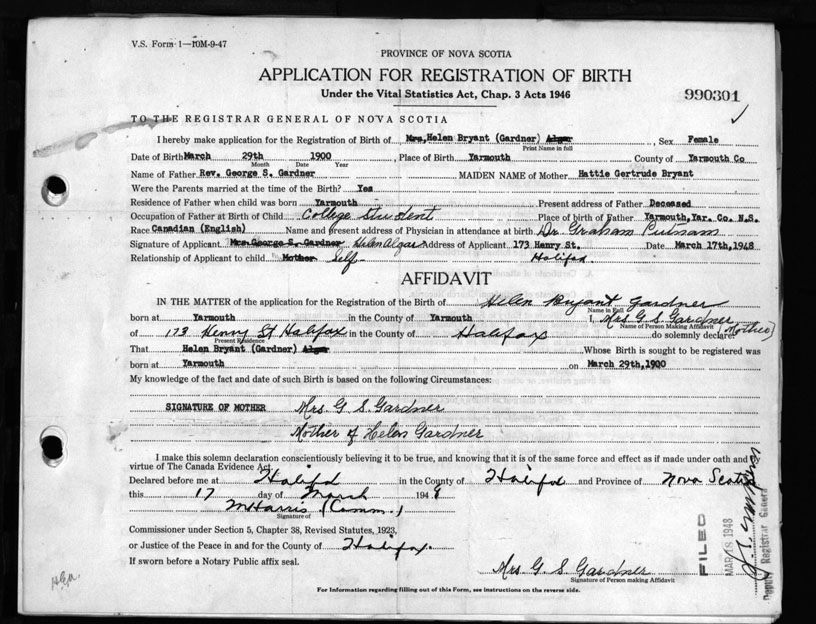 V.S. Form 1—10M-9-47
PROVINCE OF NOVA SCOTIA
APPLICATION FOR REGISTRATION OF BIRTH
Under the Vital Statistics Act, Chap. 3 Acts 1946
990301
TO THE REGISTRAR GENERAL OF NOVA SCOTIA
I hereby make application for the Registration of Birth of Mrs. Helen Bryant (Gardner) Algar, Sex Female
Print Name in full
Date of Birth March 29th 1900, Place of Birth Yarmouth County of Yarmouth Co
Month Date Year
Name of Father Rev. George S. Gardner MAIDEN NAME of Mother Hattie Gertrude Bryant
Were the Parents married at the time of the Birth? Yes
Residence of Father when child was born Yarmouth Present address of Father Deceased
Occupation of Father at Birth of Child College Student Place of birth of Father Yarmouth, Yar. Co. N.S.
Race Canadian (English) Name and present address of Physician in attendance at birth Dr. Graham Putnam
Signature of Applicant Mrs. George S. Gardner Helen Algar Address of Applicant 173 Henry St. Date March 17th, 1948
Relationship of Applicant to child Mother Self Halifax.
AFFIDAVIT
IN THE MATTER of the application for the Registration of the Birth of Helen Bryant Gardner
Name in Full
born at Yarmouth in the County of Yarmouth I, Mrs G S Gardner
Name of Person Making Affidavit (Mother)
of 173 Henry St Halifax in the County of Halifax do solemnly declare:
Present Residence
That Helen Bryant (Gardner) Algar Whose Birth is sought to be registered was
born at Yarmouth on March 29th, 1900
My knowledge of the fact and date of such Birth is based on the following Circumstances:
SIGNATURE OF MOTHER Mrs. G. S. Gardner
Mother of Helen Gardner
I make this solemn declaration conscientiously believing it to be true, and knowing that it is of the same force and effect as if made under oath and by
virtue of The Canada Evidence Act.
Declared before me at Halifax in the County of Halifax and Province of Nova Scotia
this 17 day of March 1948
Harris (Comm.)
Signature of
Commissioner under Section 5, Chapter 38, Revised Statutes, 1923,
or Justice of the Peace in and for the County of Halifax.
If sworn before a Notary Public affix seal.
Mrs G. S. Gardner
Signature of Person making Affidavit
For Information regarding filling out of this Form, see instructions on the reverse side.
FILED
MAR 18 1948
Deputy Registrar General